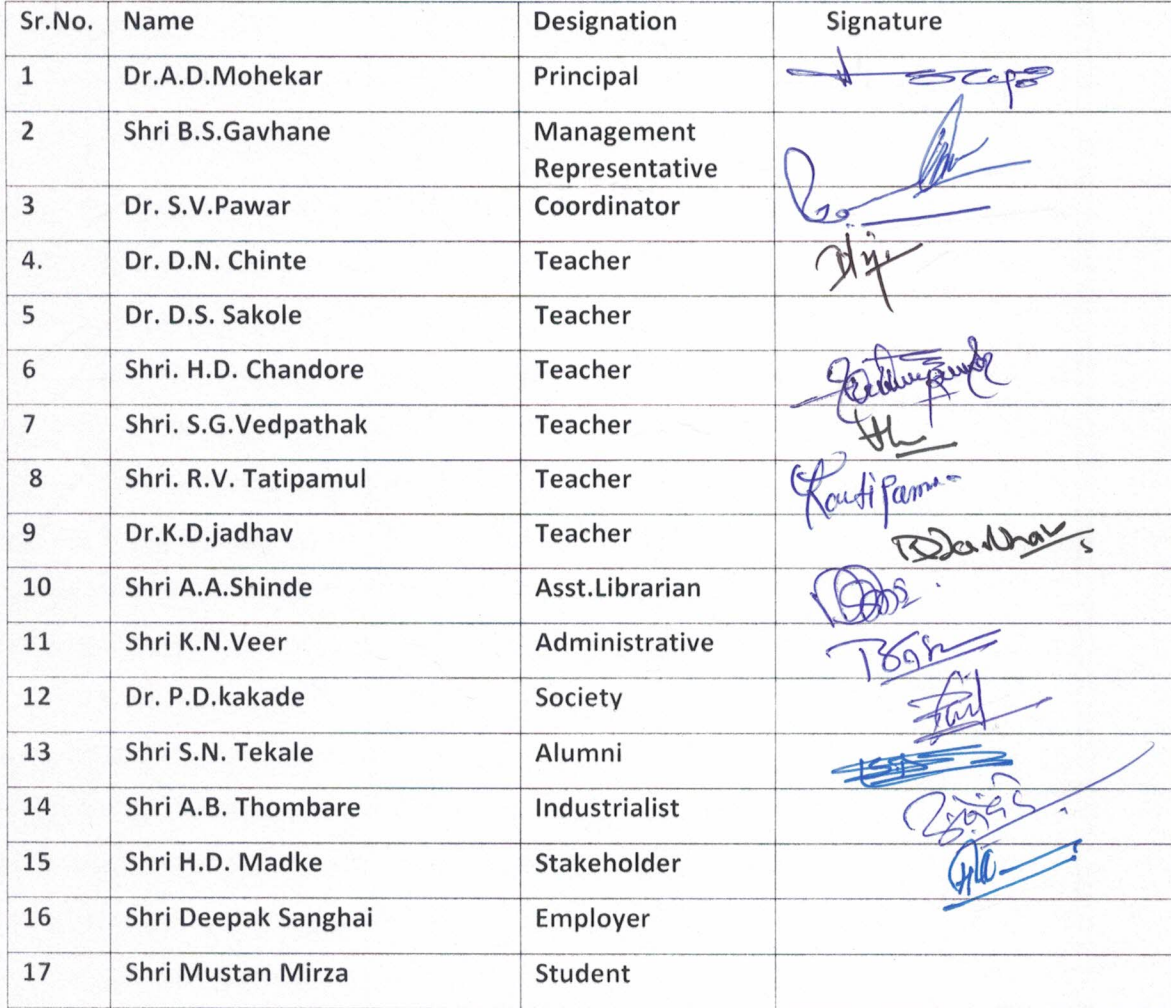 Sr.No. Name Designation Signature
1 Dr.A.D.Mohekar Principal
2 Shri B.S.Gavhane Management
Representative
3 Dr. S.V.Pawar Coordinator
4. Dr. D.N. Chinte Teacher
5 Dr. D.S. Sakole Teacher
6 Shri. H.D. Chandore Teacher
7 Shri. S.G.Vedpathak Teacher
8 Shri. R.V. Tatipamul Teacher
9 Dr.K.D.jadhav Teacher
10 Shri A.A.Shinde Asst.Librarian
11 Shri K.N.Veer Administrative
12 Dr. P.D.kakade Society
13 Shri S.N. Tekale Alumni
14 Shri A.B. Thombare Industrialist
15 Shri H.D. Madke Stakeholder
16 Shri Deepak Sanghai Employer
17 Shri Mustan Mirza Student